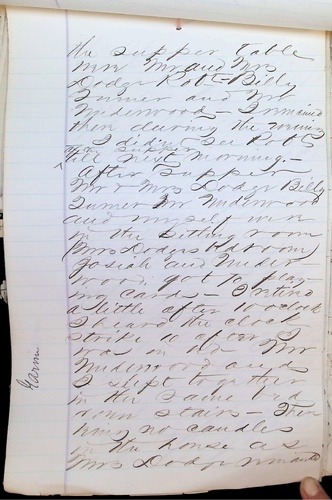 the supper table
were Mr and Mrs
Dodge Robt - Billy
Turner and Mr
Underwood - I remained
there during the evening
I didn't see Robt
then supper
till next morning. -
After supper
Mr & Mrs Dodge Billy
Turner Mr Underwood
and myself were
in the sitting room
(Mrs Dodges Bedroom)
Josiah and Under
wood got to play-
ing cards - I retired
a little after 10 oclock
I heard the clock
strike 10 before I
was in bed Mr
Underwood and
I slept together
in the same bed
down stairs - There
being no candles
in the house as
Mrs Dodge remarked